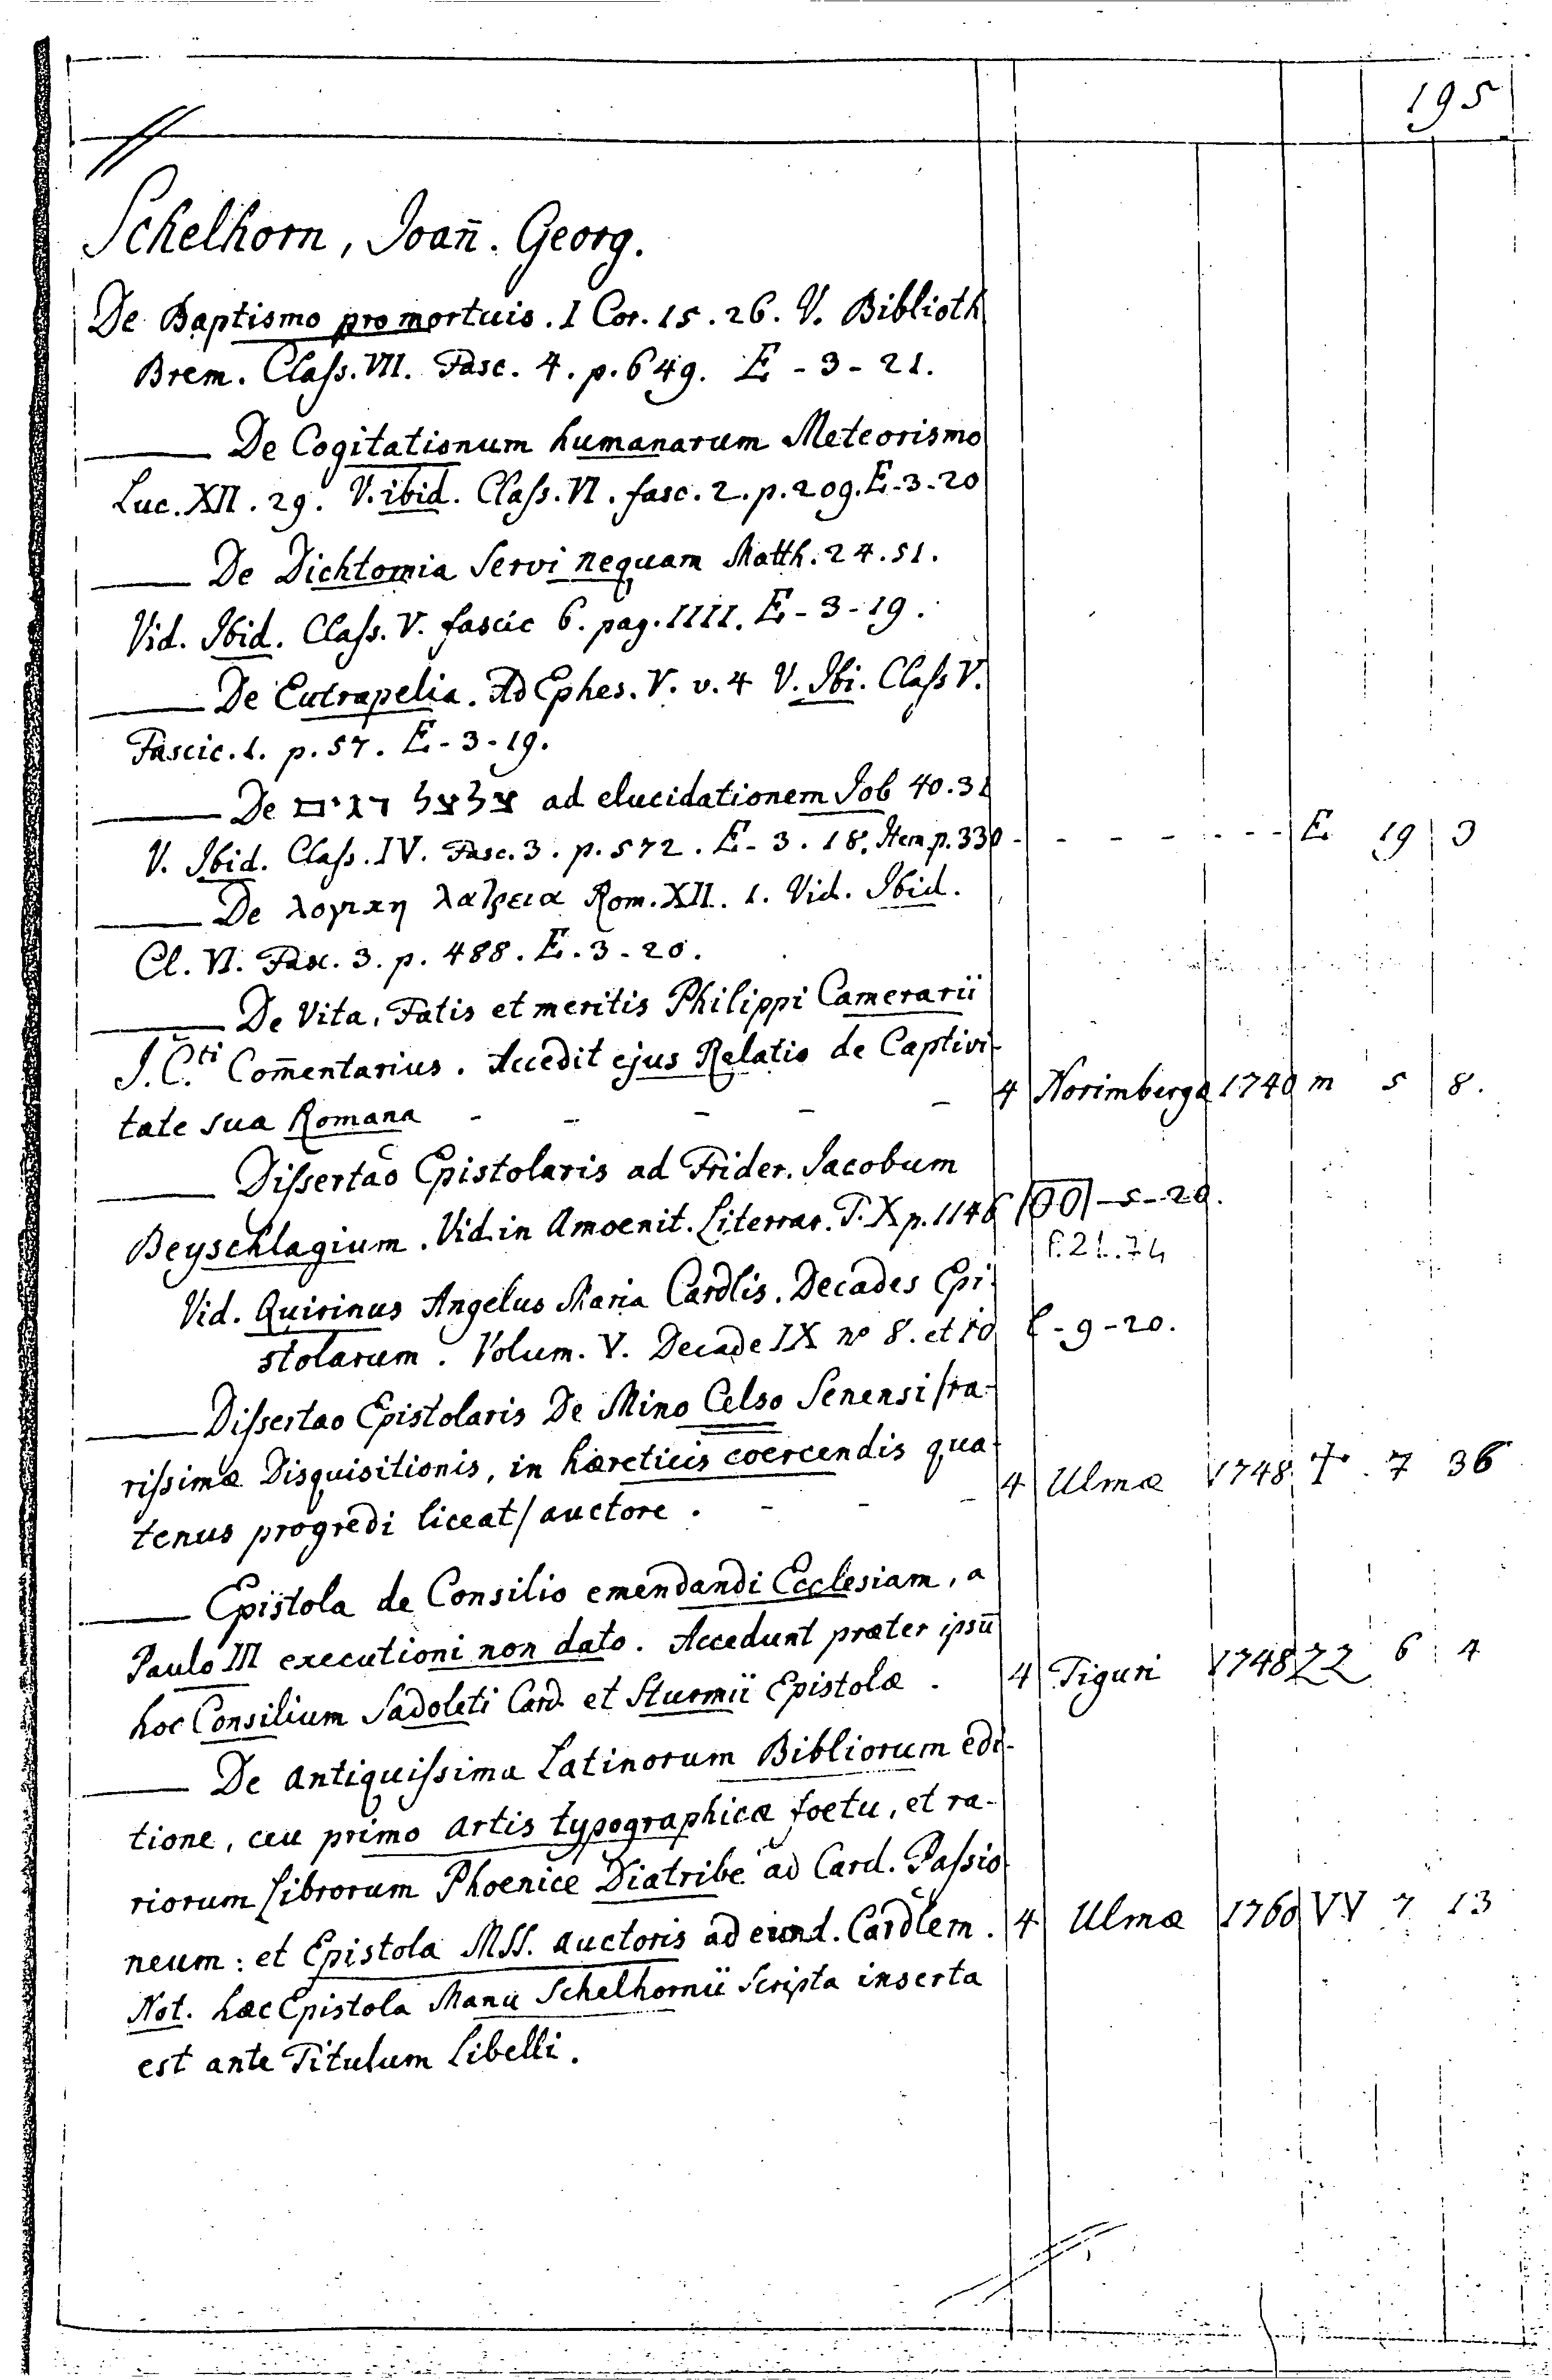 195
Schelhorn, Joan̄. Georg.
De Baptismo pro mortuis. I Cor. 15. 26. V. Biblioth
Brem. Claſs. VII. Fasc. 4. p. 649. E - 3 - 21.
—— De Cogitationum humanarum Meteorismo
Luc. XII. 29. V. ibid. Claſs. VI. fasc. 2. p. 209. E - 3 - 20
—— De Dichtomia Servi nequam Matth. 24. 51.
Vid. Ibid. Claſs. V. fascic 6. pag. 1111. E - 3 - 19.
—— De Eutrapelia. Ad Ephes. V. v. 4 V. Ibi. Claſs V.
Fascic. 1. p. 57. E - 3 - 19.
—— De צלצל דגים ad elucidationem Job 40. 31
V. Ibid. Claſs. IV. Fasc. 3. p. 572. E - 3. 18. Item p. 330 - - - - - - - E 19 3
—— De λογικη λατρεια Rom. XII. 1. Vid. Ibid.
Cl. VI. Fasc. 3. p. 488. E. 3 - 20.
—— De Vita, Fatis et meritis Philippi Camerarii
J. C.ti Com̄entarius. Accedit ejus Relatio de Captivi-
tate sua Romana - - - - - 4 Norimberga 1740 m 5 8.
—— Diſsertao Epistolaris ad Frider. Jacobum
Beyschlagium. Vid. in Amoenit. Literrar. T. X p. 1146 OO - 5 - 20.
f. 21. 74
Vid. Quirinus Angelus Maria Cardlis. Decades Epi-
stolarum. Volum. V. Decade IX no 8. et 10 - 9 - 20.
—— Diſsertao Epistolaris De Mino Celso Senensi /ra-
riſsimæ Disquisitionis, in hæreticis coercendis qua-
tenus progredi liceat/ auctore. - - - 4 Ulmæ 1748. 7 36
—— Epistola de Consilio emendandi Ecclesiam, a
Paulo III executioni non dato. Accedunt præter ipsū
hoc Consilium Sadoleti Card. et Sturmii Epistolæ. 4 Tiguri 1748 ZZ 6 4
—— De antiquiſsima Latinorum Bibliorum edi-
tione, ceu primo artis typographicæ foetu, et ra-
riorum librorum Phoenice Diatribe ad Card. Paſsio
neum: et Epistola MSS. auctoris ad eund. Cardlem. 4 Ulmæ 1760 VV 7 13
Not. hæc Epistola Manu Schelhornii Scripta inserta
est ante Titulum Libelli.